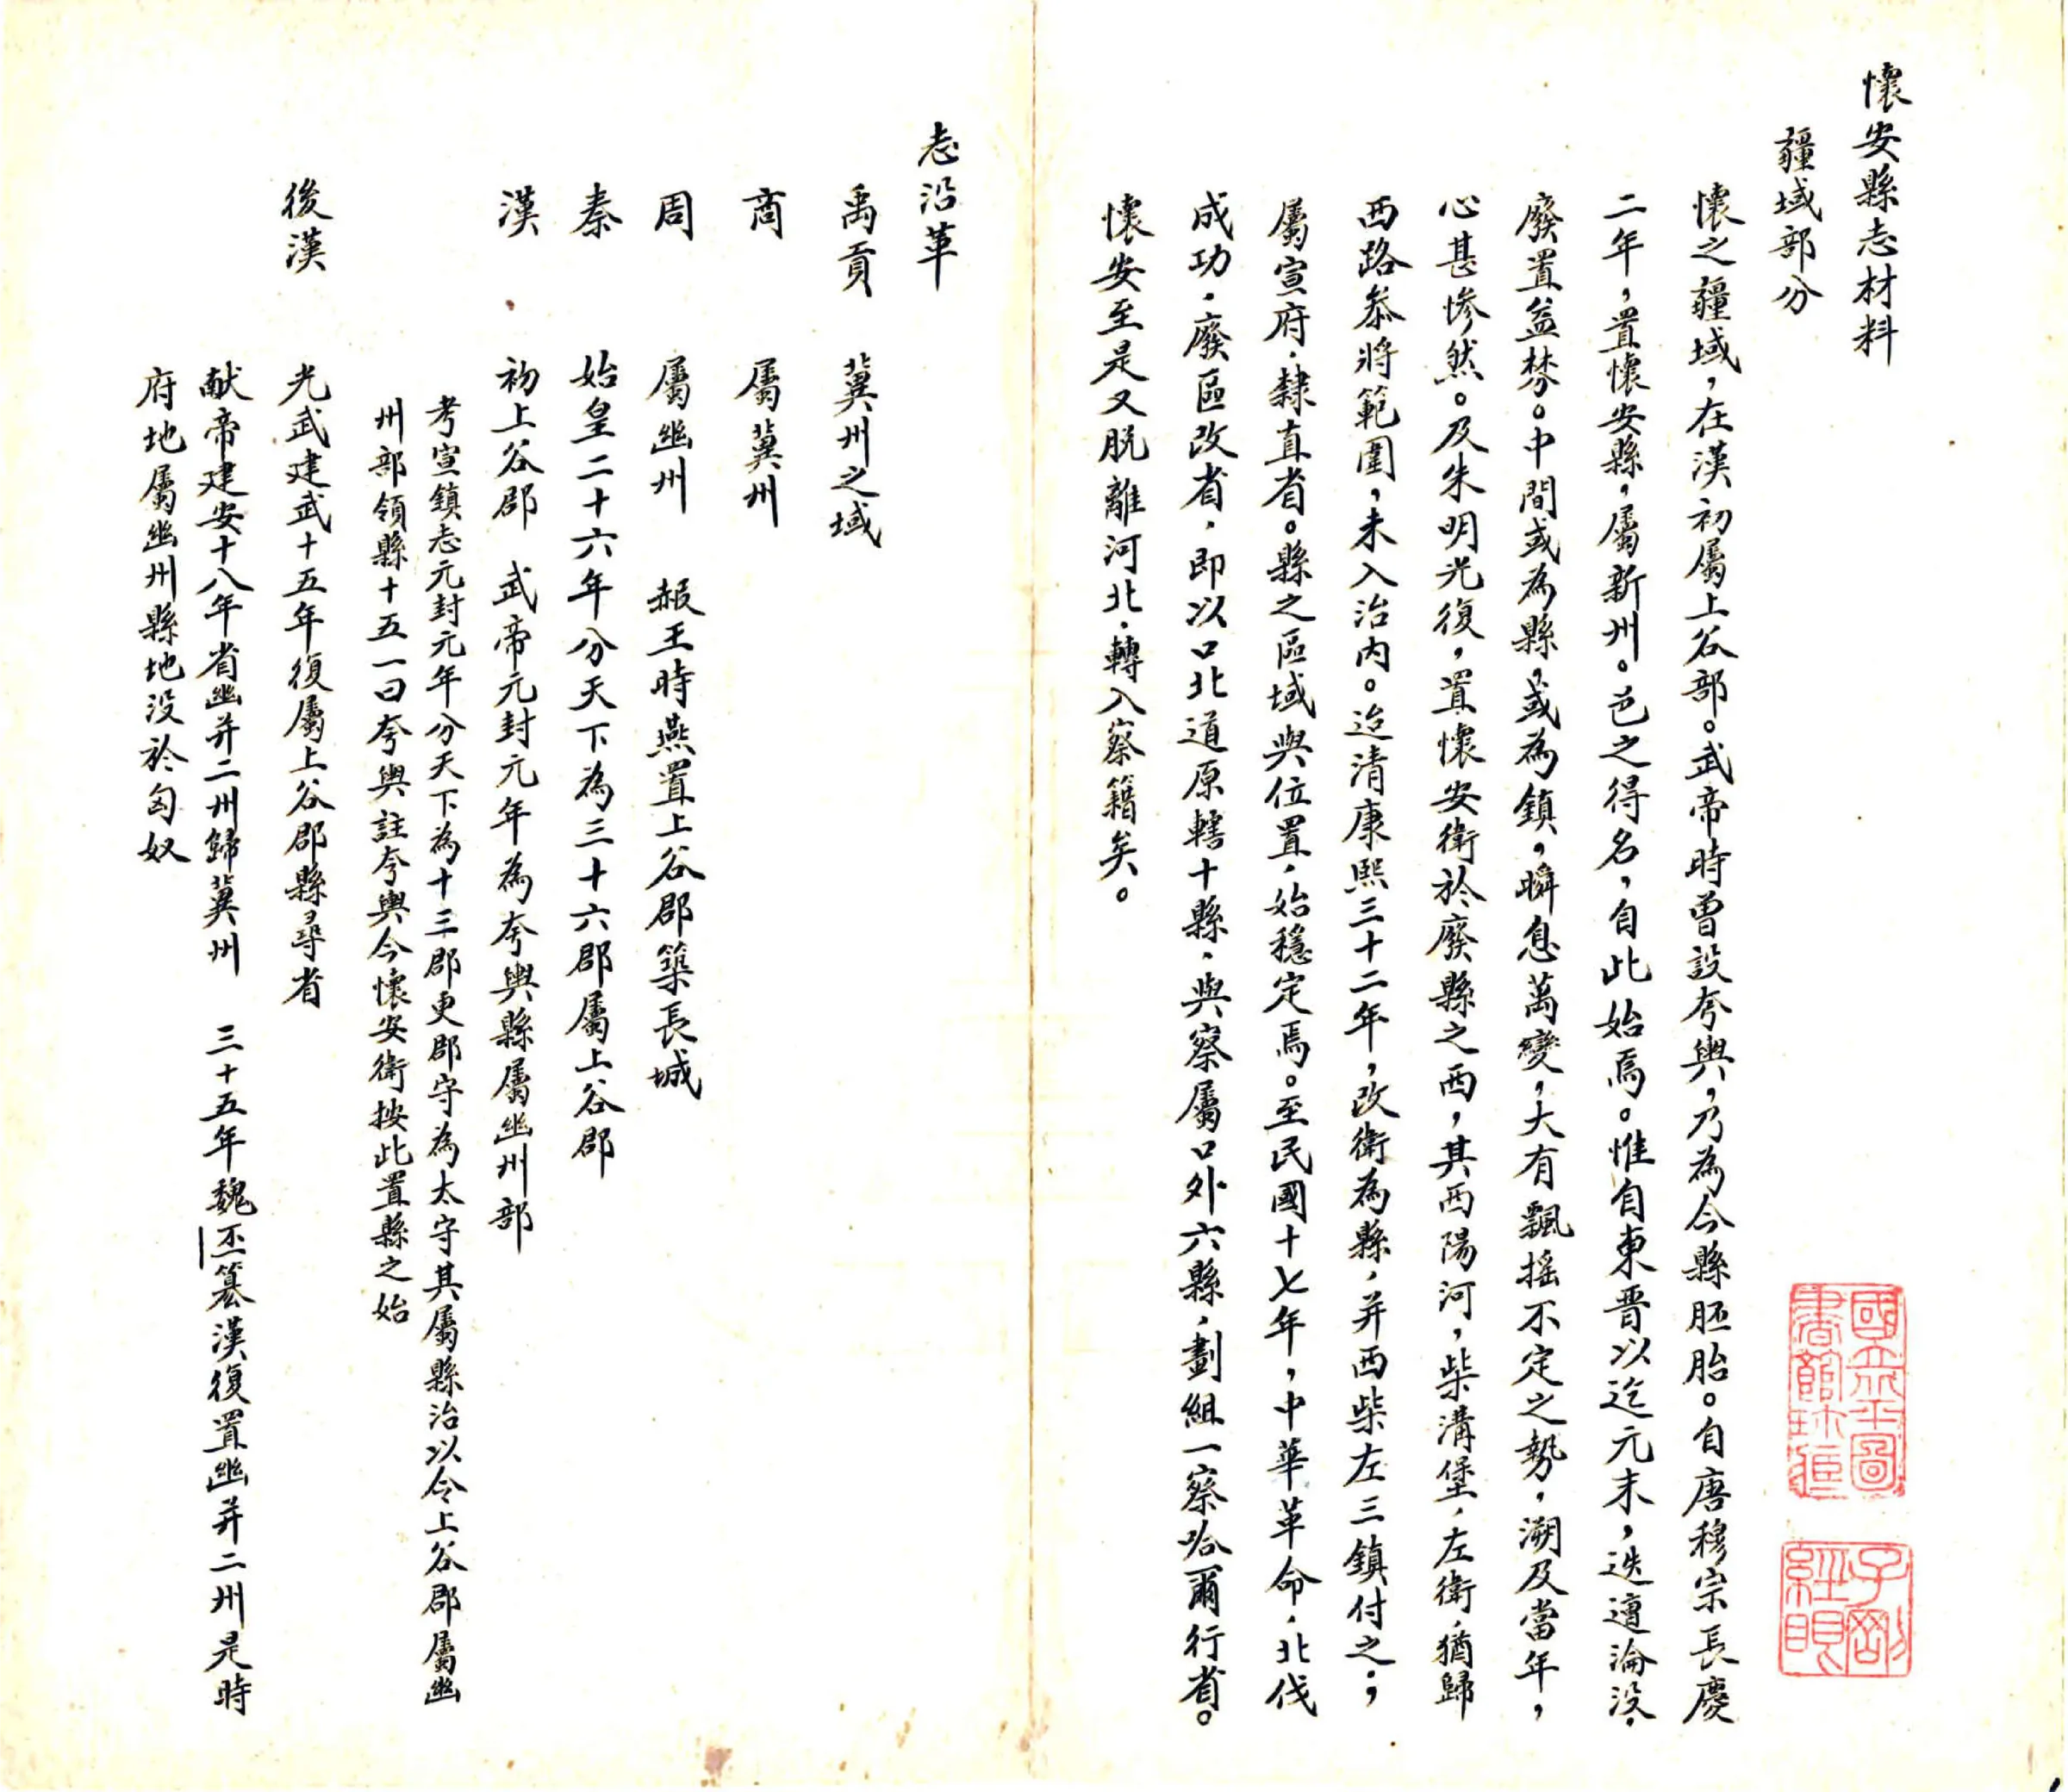 懷安縣志材料
疆域部分
懷之疆域，在漢初屬上谷部。武帝時曾設夸輿，乃為今縣胚胎。自唐穆宗長慶
二年，置懷安縣，屬新州。邑之得名，自此始焉。惟自東晋以迄元末，迭遭淪没、
廢置益棼。中間或為縣，或為鎮，瞬息萬變，大有飄摇不定之勢，溯及當年，
心甚惨然。及朱明光復，置懷安衛於廢縣之西，其西陽河，柴溝堡、左衛，猶歸
西路叅將範圍，未入治内。迨清康熙三十二年，改衛為縣，并西柴左三鎮付之；
屬宣府、隸直省。縣之區域與位置，始穩定焉。至民國十七年，中華革命，北伐
成功，廢區改省，即以口北道原轄十縣，與察屬口外六縣，劃組一察哈爾行省。
懷安至是又脱離河北，轉入察籍矣。
志沿革
禹貢 冀州之域
商 屬冀州
周 屬幽州 赧王時燕置上谷郡築長城
秦 始皇二十六年分天下為三十六郡屬上谷郡
漢 初上谷郡 武帝元封元年為夸輿縣屬幽州部
考宣鎮志元封元年分天下為十三郡更郡守為太守其屬縣治以令上谷郡屬幽
州部領縣十五一曰夸輿註夸輿今懷安衛按此置縣之始
後漢 光武建武十五年復屬上谷郡縣尋省
献帝建安十八年省幽并二州歸冀州 三十五年魏丕篡漢復置幽并二州是時
府地屬幽州縣地没於匈奴
國立北平圖書館珍藏
子剛經眼